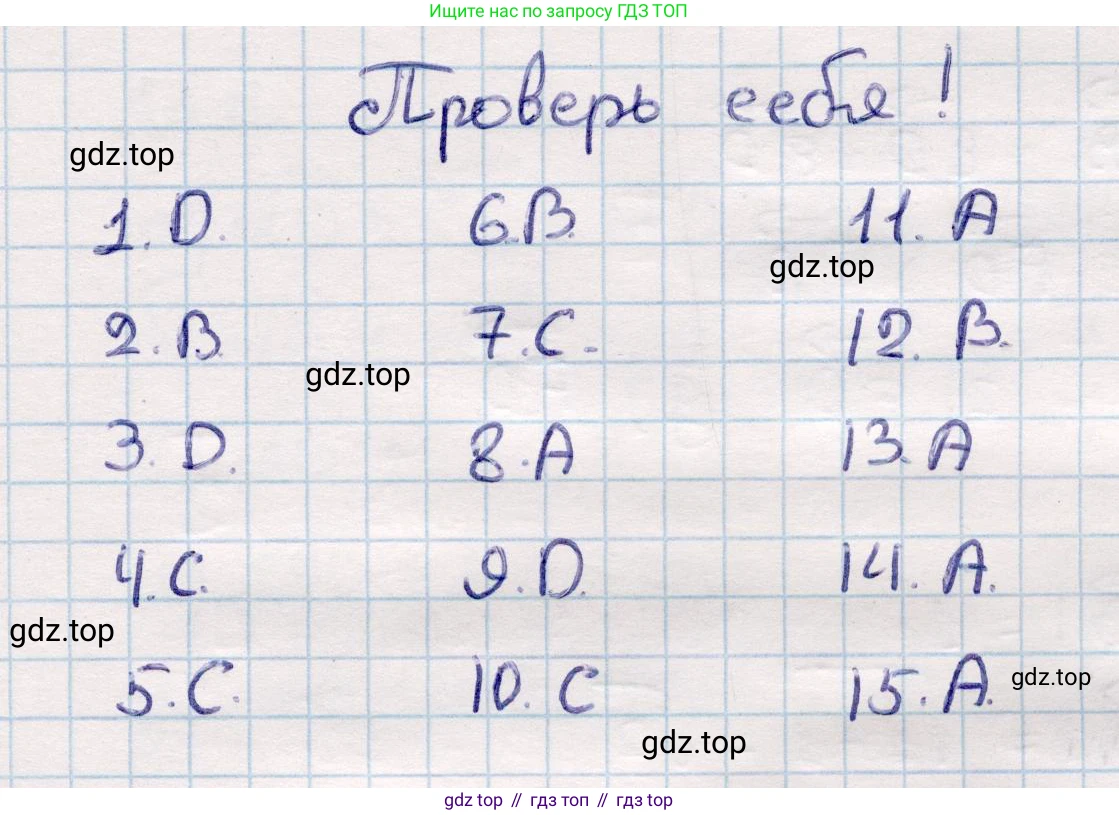 Ищите нас по запросу ГДЗ ТОП
Проверь себя!
gdz.top
1. D. 6. B. 11. A
gdz.top
2. B. 7. C. 12. B.
gdz.top
3. D. 8. A 13. A
4. C. 9. D. 14. A.
gdz.top
5. C. 10. C 15. A.
gdz.top
gdz.top
gdz top // гдз топ // гдз top